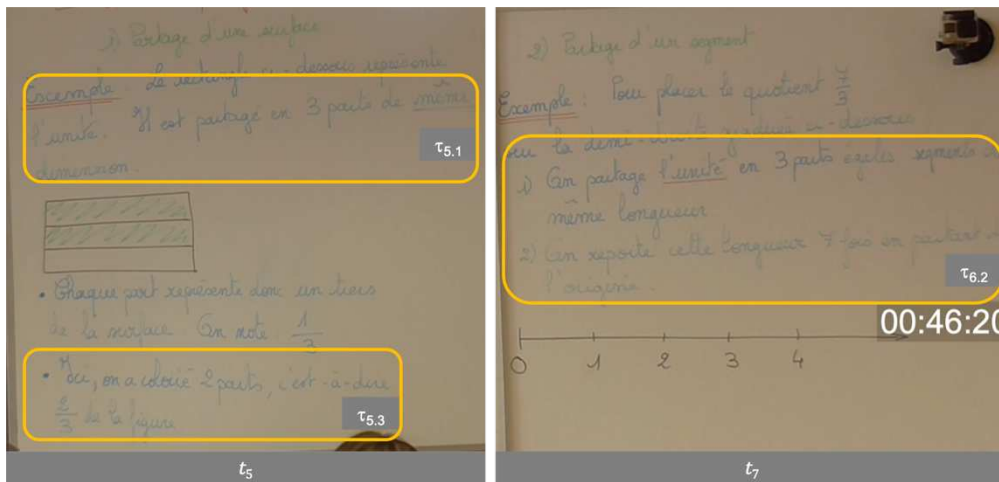 1) Partage d'une surface
Exemple : Le rectangle ci-dessous représente
l'unité. Il est partagé en 3 parts de même
τ5.1
dimension.
• Chaque part représente donc un tiers
de la surface. On note 1/3
• Ici, on a colorié 2 parts, c'est-à-dire
2/3 de la figure
τ5.3
t5
2) Partage d'un segment
Exemple : Pour placer le quotient 7/3
sur la demi-droite graduée ci-dessous
1) On partage l'unité en 3 parts égales segments
même longueur
2) On reporte cette longueur 7 fois en partant
l'origine.
τ6.2
00:46:20
0 1 2 3 4
t7